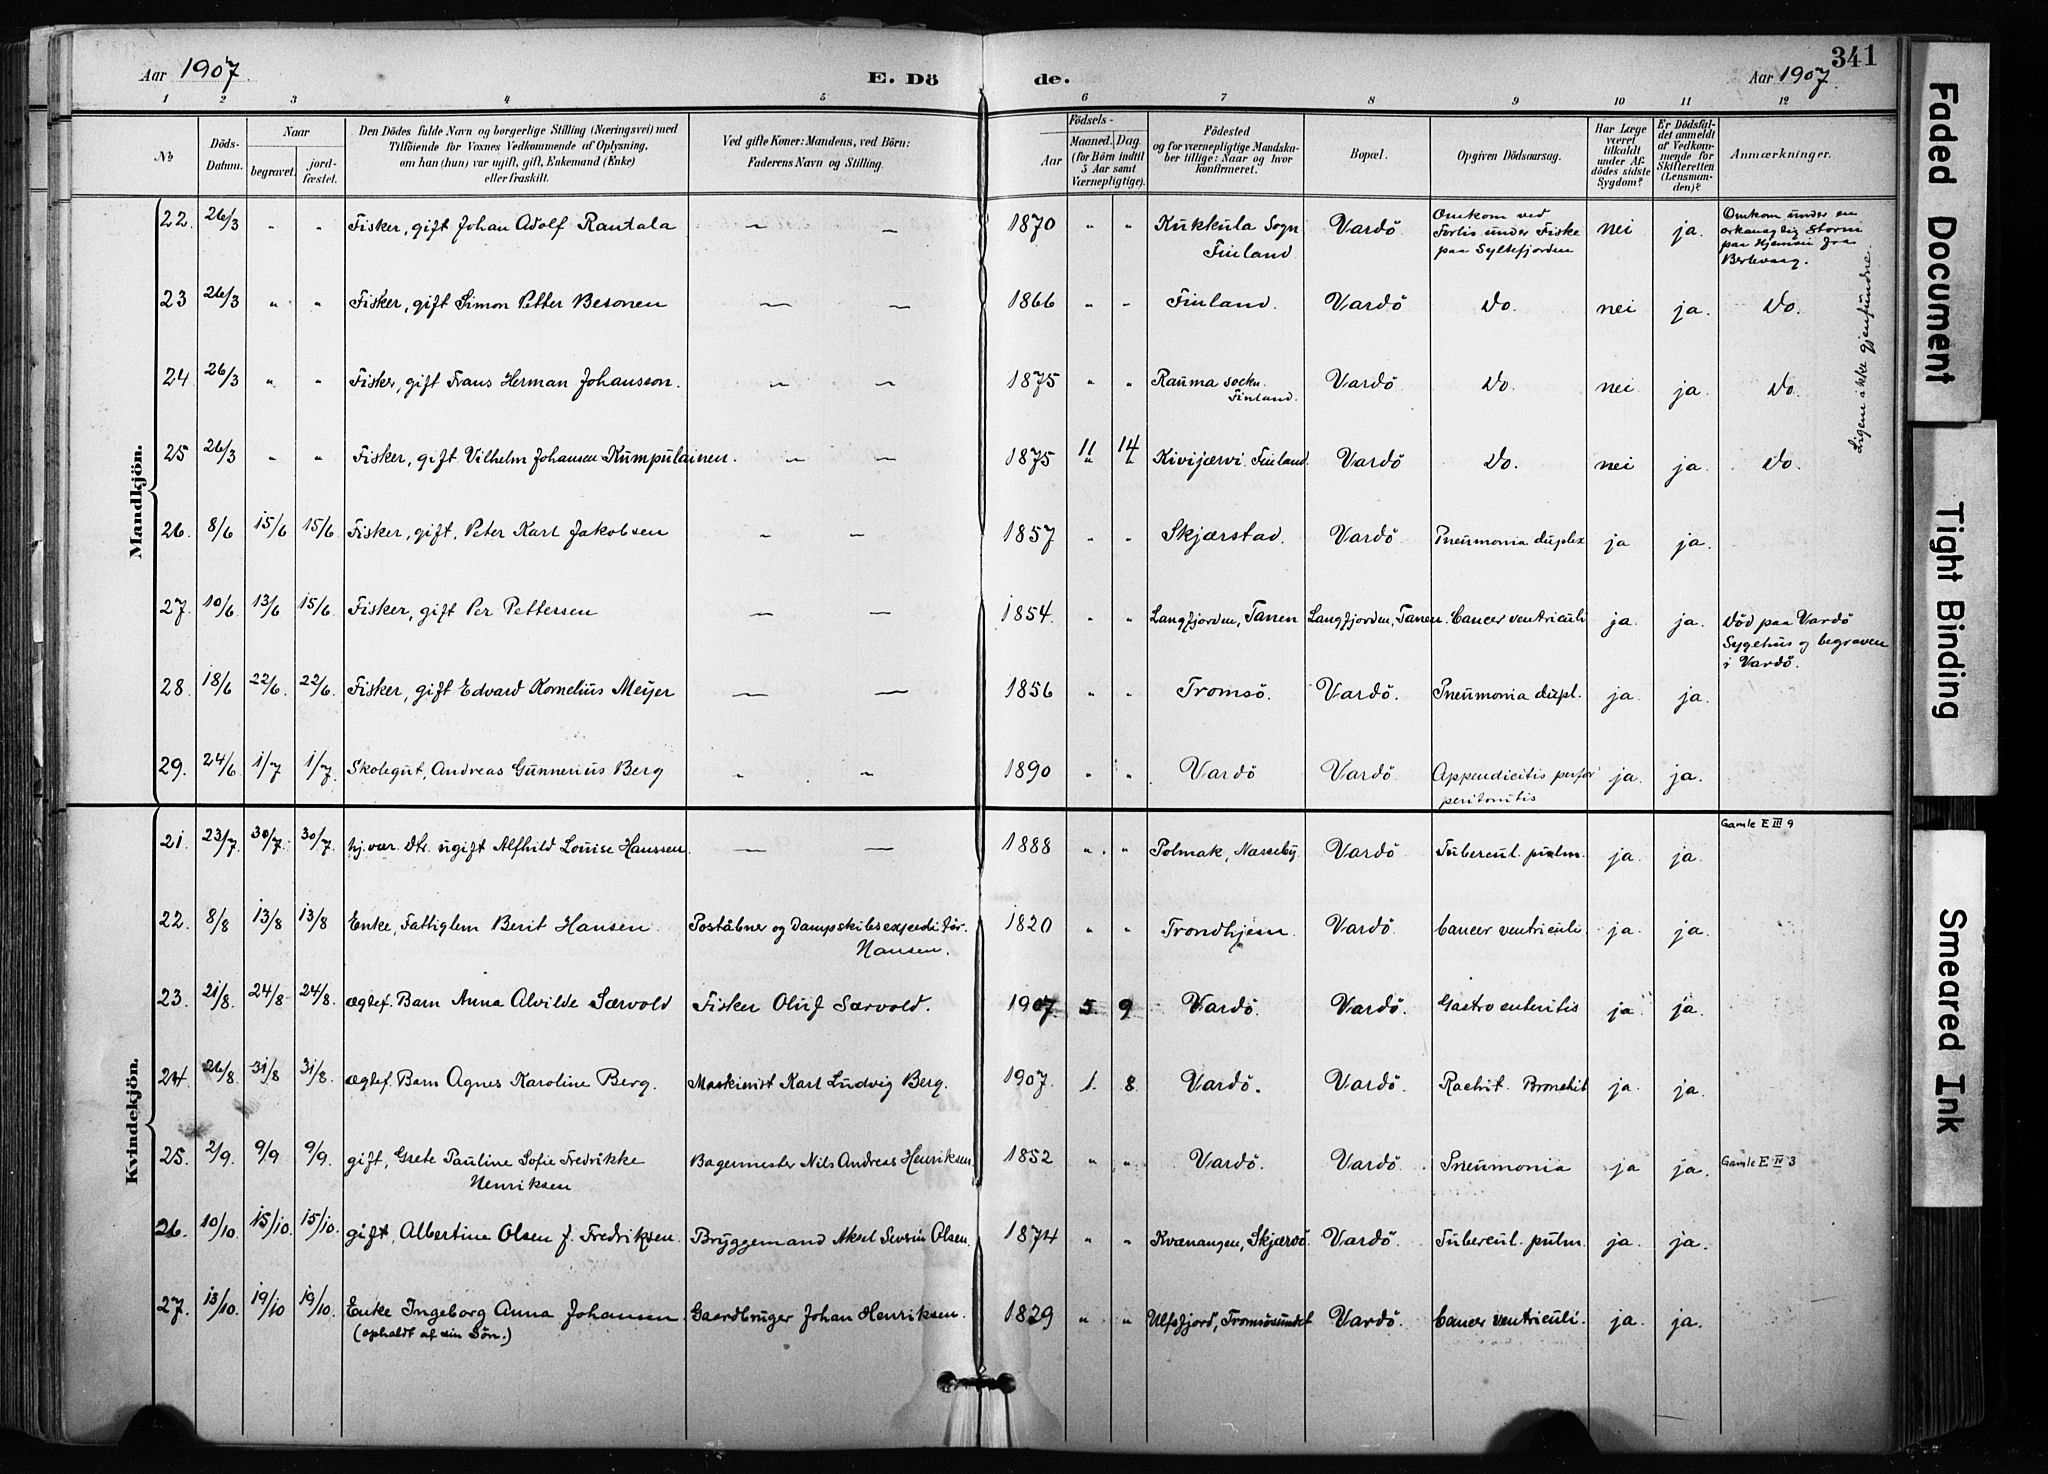 341
Aar 1907. E. Dö de. Aar 1907.
1 2 3 4 5 6 7 8 9 10 11 12
№ Döds-Datum. Naar begravet. jordfæstet. Den Dödes fulde Navn og borgerlige Stilling (Næringsvei) med Tilföiende for Voxnes Vedkommende af Oplysning, om han (hun) var ugift, gift, Enkemand (Enke) eller fraskilt. Ved gifte Koner: Mandens, ved Börn: Faderens Navn og Stilling. Födsels- Aar Maaned. Dag (for Börn indtil 5 Aar samt Værnepligtige). Födested og for værnepligtige Mandskaber tillige: Naar og hvor konfirmeret. Bopæl. Opgiven Dödsaarsag. Har Læge været tilkaldt under Afdödes sidste Sygdom? Er Dödsfaldet anmeldt af Vedkommende for Skifteretten (Lensmanden)? Anmærkninger.
Mandkjön.
22. 26/3 " " Fisker, gift Johan Adolf Rantala — — 1870 " " Kukkula Sogn Finland Vardö Omkom ved Forlis under Fiske paa Syltefjorden nei ja. Omkom under en orkanagtig Storm paa Hjemvei fra Berlevaag.
23 26/3 " " Fisker, gift Simon Petter Besonen — — 1866 " " Finland. Vardö Do. nei ja. Do.
24 26/3 " " Fisker, gift Frans Herman Johansson. — — 1875 " " Rauma sockn. Finland. Vardö Do. nei ja Do.
25 26/3 " " Fisker, gift Vilhelm Johansen Kumpulainen. — — 1875 11 14 Kivijærvi. Finland. Vardö Do. nei ja Do.
Ligene ikke gjenfundne.
26. 8/6 15/6 15/6 Fisker, gift, Peter Karl Jakobsen — — 1857 " " Skjærstad. Vardö. Pneumonia duplex ja ja.
27. 10/6 13/6 15/6 Fisker, gift Per Pettersen — — 1854. " " Langfjorden, Tanen Langfjorden, Tanen. Cancer ventriculi ja. ja. Död paa Vardö Sygehus og begraven i Vardö.
28. 18/6 22/6. 22/6. Fisker, gift Edvard Kornelius Meyer — — 1856 " " Tromsö. Vardö. Pneumonia dupl. ja. ja
29. 24/6 1/7 1/7. Skolegut, Andreas Gunnerius Berg " " 1890 " " Vardö Vardö. Appendicitis perfor peritonitis ja. ja.
Kvindekjön.
21. 23/7. 30/7. 30/7. hj.vær. Dtr. ugift Alfhild Louise Hanssen. — — 1888 " " Polmak, Nasseby. Vardö Tubercul. pulm. ja. ja. Gamle E III 9
22. 8/8 13/8 13/8 Enke, Fattiglem Berit Hansen. Poståbner og Dampskibsexpeditör. Hansen. 1820 " " Trondhjem. Vardö. Cancer ventriculi. ja. ja.
23. 21/8. 24/8 24/8. ægtef. Barn Anna Alvilde Særvold Fisker Oluf Særvold. 1907. 5. 9. Vardö. Vardö. Gastro enteritis ja ja.
24. 26/8. 31/8 31/8. ægtef. Barn Agnes Karoline Berg. Maskinist Karl Ludvig Berg. 1907. 1. 8. Vardö. Vardö. Rachit. Bronchit ja. ja.
25. 2/9. 9/9 9/9. gift, Grete Pauline Sofie Fredrikke Henriksen Bagermester Nils Andreas Henriksen. 1852 " " Vardö. Vardö. Pneumonia ja ja. Gamle E IV 3
26. 10/10 15/10. 15/10. gift, Albertine Olsen f. Fredriksen. Bryggemand Aksel Severin Olsen. 1874 " " Kvænangen, Skjærvö. Vardö. Tubercul. pulm. ja. ja.
27. 13/10. 19/10 19/10. Enke Ingeborg Anna Johansen. (opholdt af sin Sön.) Gaardbruger Johan Henriksen. 1829 " " Ulfsfjord, Tromsösundet Vardö. Cancer ventriculi. ja. ja.
Faded Document
Tight Binding
Smeared Ink